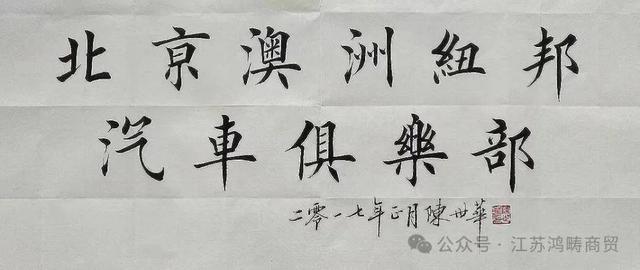 北京澳洲紐邦
汽車俱樂部
二零一七年正月陳世華
公众号·江苏鸿畴商贸